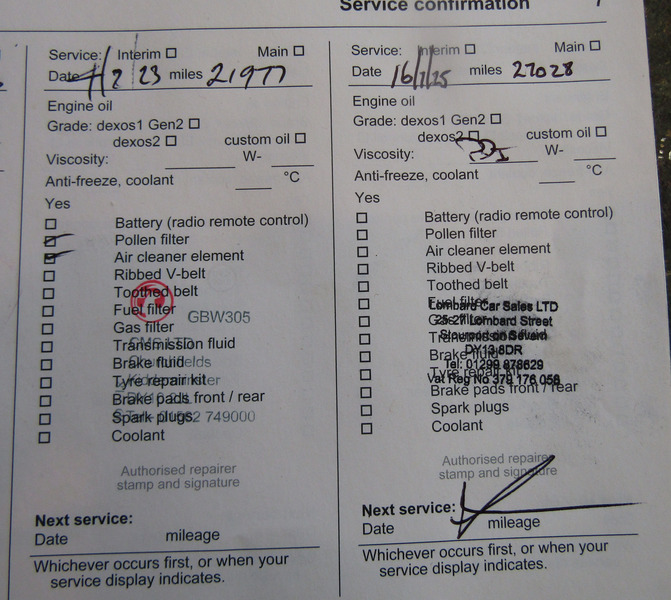 Service confirmation
Service: Interim Main
Date 4/2/23 miles 21977
Engine oil
Grade: dexos1 Gen2
dexos2 custom oil
Viscosity: W-
Anti-freeze, coolant °C
Yes
Battery (radio remote control)
Pollen filter
Air cleaner element
Ribbed V-belt
Toothed belt
Fuel filter
GBW305
Gas filter
Transmission fluid
Brake fluid
Tyre repair kit
Brake pads front / rear
Spark plugs
749000
Coolant
Authorised repairer
stamp and signature
Next service:
Date mileage
Whichever occurs first, or when your
service display indicates.
Service: Interim Main
Date miles 27028
Engine oil
Grade: dexos1 Gen2
dexos2 custom oil
Viscosity: W-
Anti-freeze, coolant °C
Yes
Battery (radio remote control)
Pollen filter
Air cleaner element
Ribbed V-belt
Toothed belt
Fuel filter
Lombard Car Sales LTD
Gas filter
25-27 Lombard Street
Transmission fluid
Stourport on Severn
DY13 8DR
Brake fluid
Tel: 01299 878629
Tyre repair kit
Vat Reg No 379 176 058
Brake pads front / rear
Spark plugs
Coolant
Authorised repairer
stamp and signature
Next service:
Date mileage
Whichever occurs first, or when your
service display indicates.